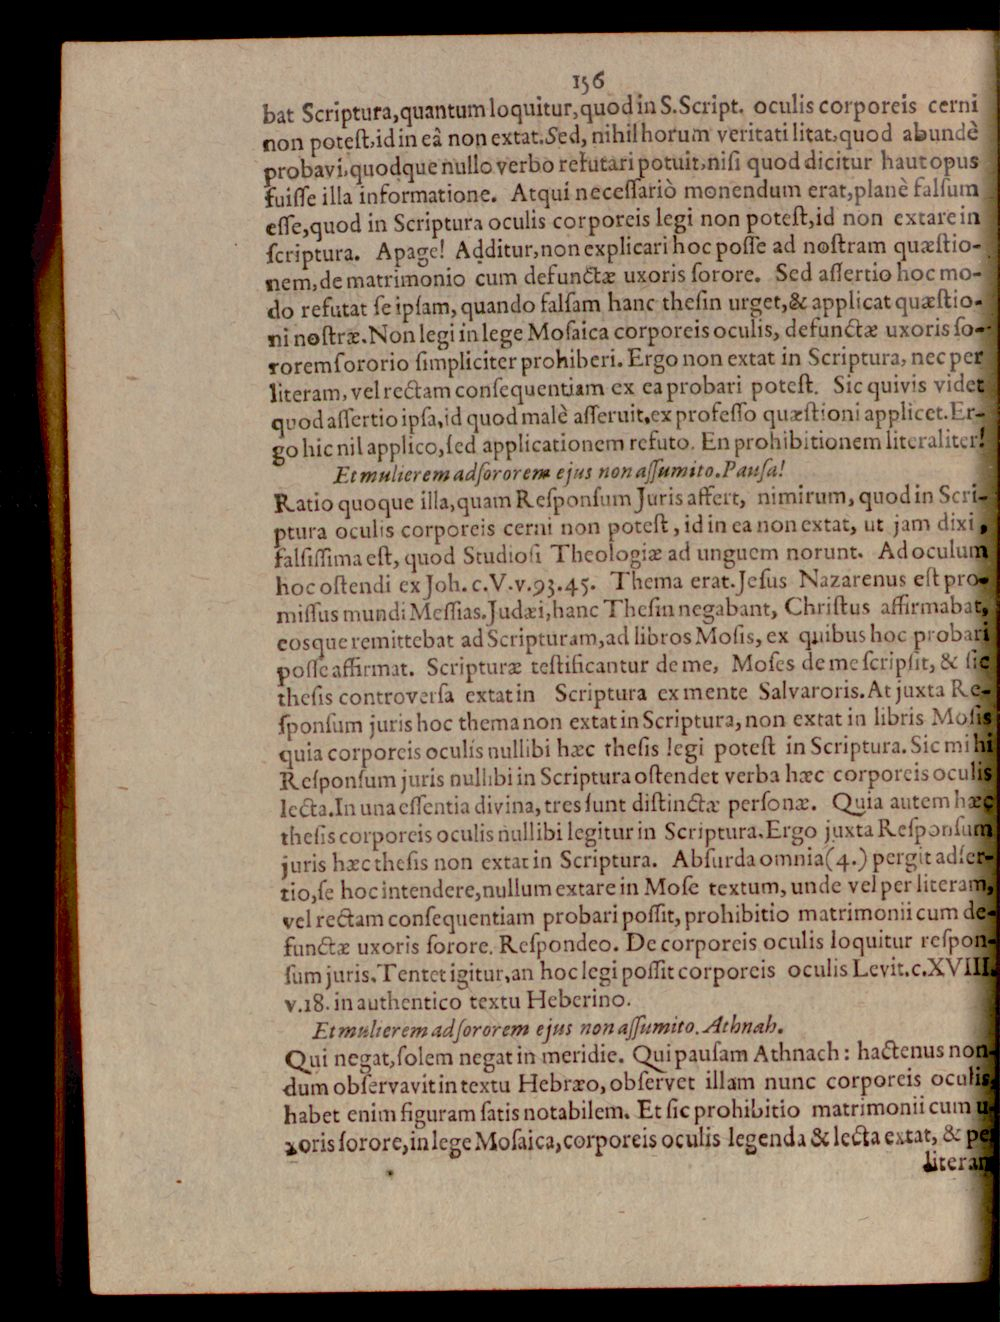 156
bat Scriptura,quantum loquitur,quod in S.Script. oculis corporeis cerni
non poteſt,id in eâ non extat.Sed, nihil horum veritati litat,quod abundè
probavi,quodque nullo verbo refutari potuit,niſi quod dicitur haut opus
fuiſſe illa informatione. Atqui neceſſariò monendum erat,planè falſum
eſſe,quod in Scriptura oculis corporeis legi non poteſt,id non extare in
ſcriptura. Apage! Additur,non explicari hoc poſſe ad noſtram quæſtio-
nem,de matrimonio cum defunctæ uxoris ſorore. Sed aſſertio hoc mo-
do refutat ſe ipſam, quando falſam hanc theſin urget,& applicat quæſtio-
ni noſtræ.Non legi in lege Moſaica corporeis oculis, defunctæ uxoris ſo-
rorem ſororio ſimpliciter prohiberi. Ergo non extat in Scriptura, nec per
literam, vel rectam conſequentiam ex ea probari poteſt. Sic quivis videt
quod aſſertio ipſa,id quod malè aſſeruit,ex profeſſo quæſtioni applicet.Er-
go hic nil applico,ſed applicationem refuto. En prohibitionem literaliter!
Et mulierem ad ſororem ejus non aſſumito. Pauſa!
Ratio quoque illa,quam Reſponſum Juris affert, nimirum, quod in Scri-
ptura oculis corporeis cerni non poteſt, id in ea non extat, ut jam dixi,
falſiſſima eſt, quod Studioſi Theologiæ ad unguem norunt. Ad oculum
hoc oſtendi ex Joh. c.V.v.93.45. Thema erat.Jeſus Nazarenus eſt pro-
miſſus mundi Meſſias.Judæi,hanc Theſin negabant, Chriſtus affirmabat,
eosque remittebat ad Scripturam,ad libros Moſis, ex quibus hoc probari
poſſe affirmat. Scripturæ teſtificantur de me, Moſes de me ſcripſit, & ſic
theſis controverſa extat in Scriptura ex mente Salvaroris. At juxta Re-
ſponſum juris hoc thema non extat in Scriptura, non extat in libris Moſis
quia corporeis oculis nullibi hæc theſis legi poteſt in Scriptura. Sic mihi
Reſponſum juris nullibi in Scriptura oſtendet verba hæc corporeis oculis
lecta.In una eſſentia divina, tres ſunt diſtinctæ perſonæ. Quia autem hæc
theſis corporeis oculis nullibi legitur in Scriptura.Ergo juxta Reſponſum
juris hæc theſis non extat in Scriptura. Abſurda omnia(4.) pergit adſer-
tio,ſe hoc intendere,nullum extare in Moſe textum, unde vel per literam,
vel rectam conſequentiam probari poſſit, prohibitio matrimonii cum de-
functæ uxoris ſorore. Reſpondeo. De corporeis oculis loquitur reſpon-
ſum juris. Tentet igitur,an hoc legi poſſit corporeis oculis Levit.c.XVIII.
v.18. in authentico textu Heberino.
Et mulierem ad ſororem ejus non aſſumito. Athnah.
Qui negat,ſolem negat in meridie. Qui pauſam Athnach: hactenus non-
dum obſervavit in textu Hebræo, obſervet illam nunc corporeis oculis,
habet enim figuram ſatis notabilem. Et ſic prohibitio matrimonii cum u-
xoris ſorore, in lege Moſaica, corporeis oculis legenda & lecta extat, & per
literam